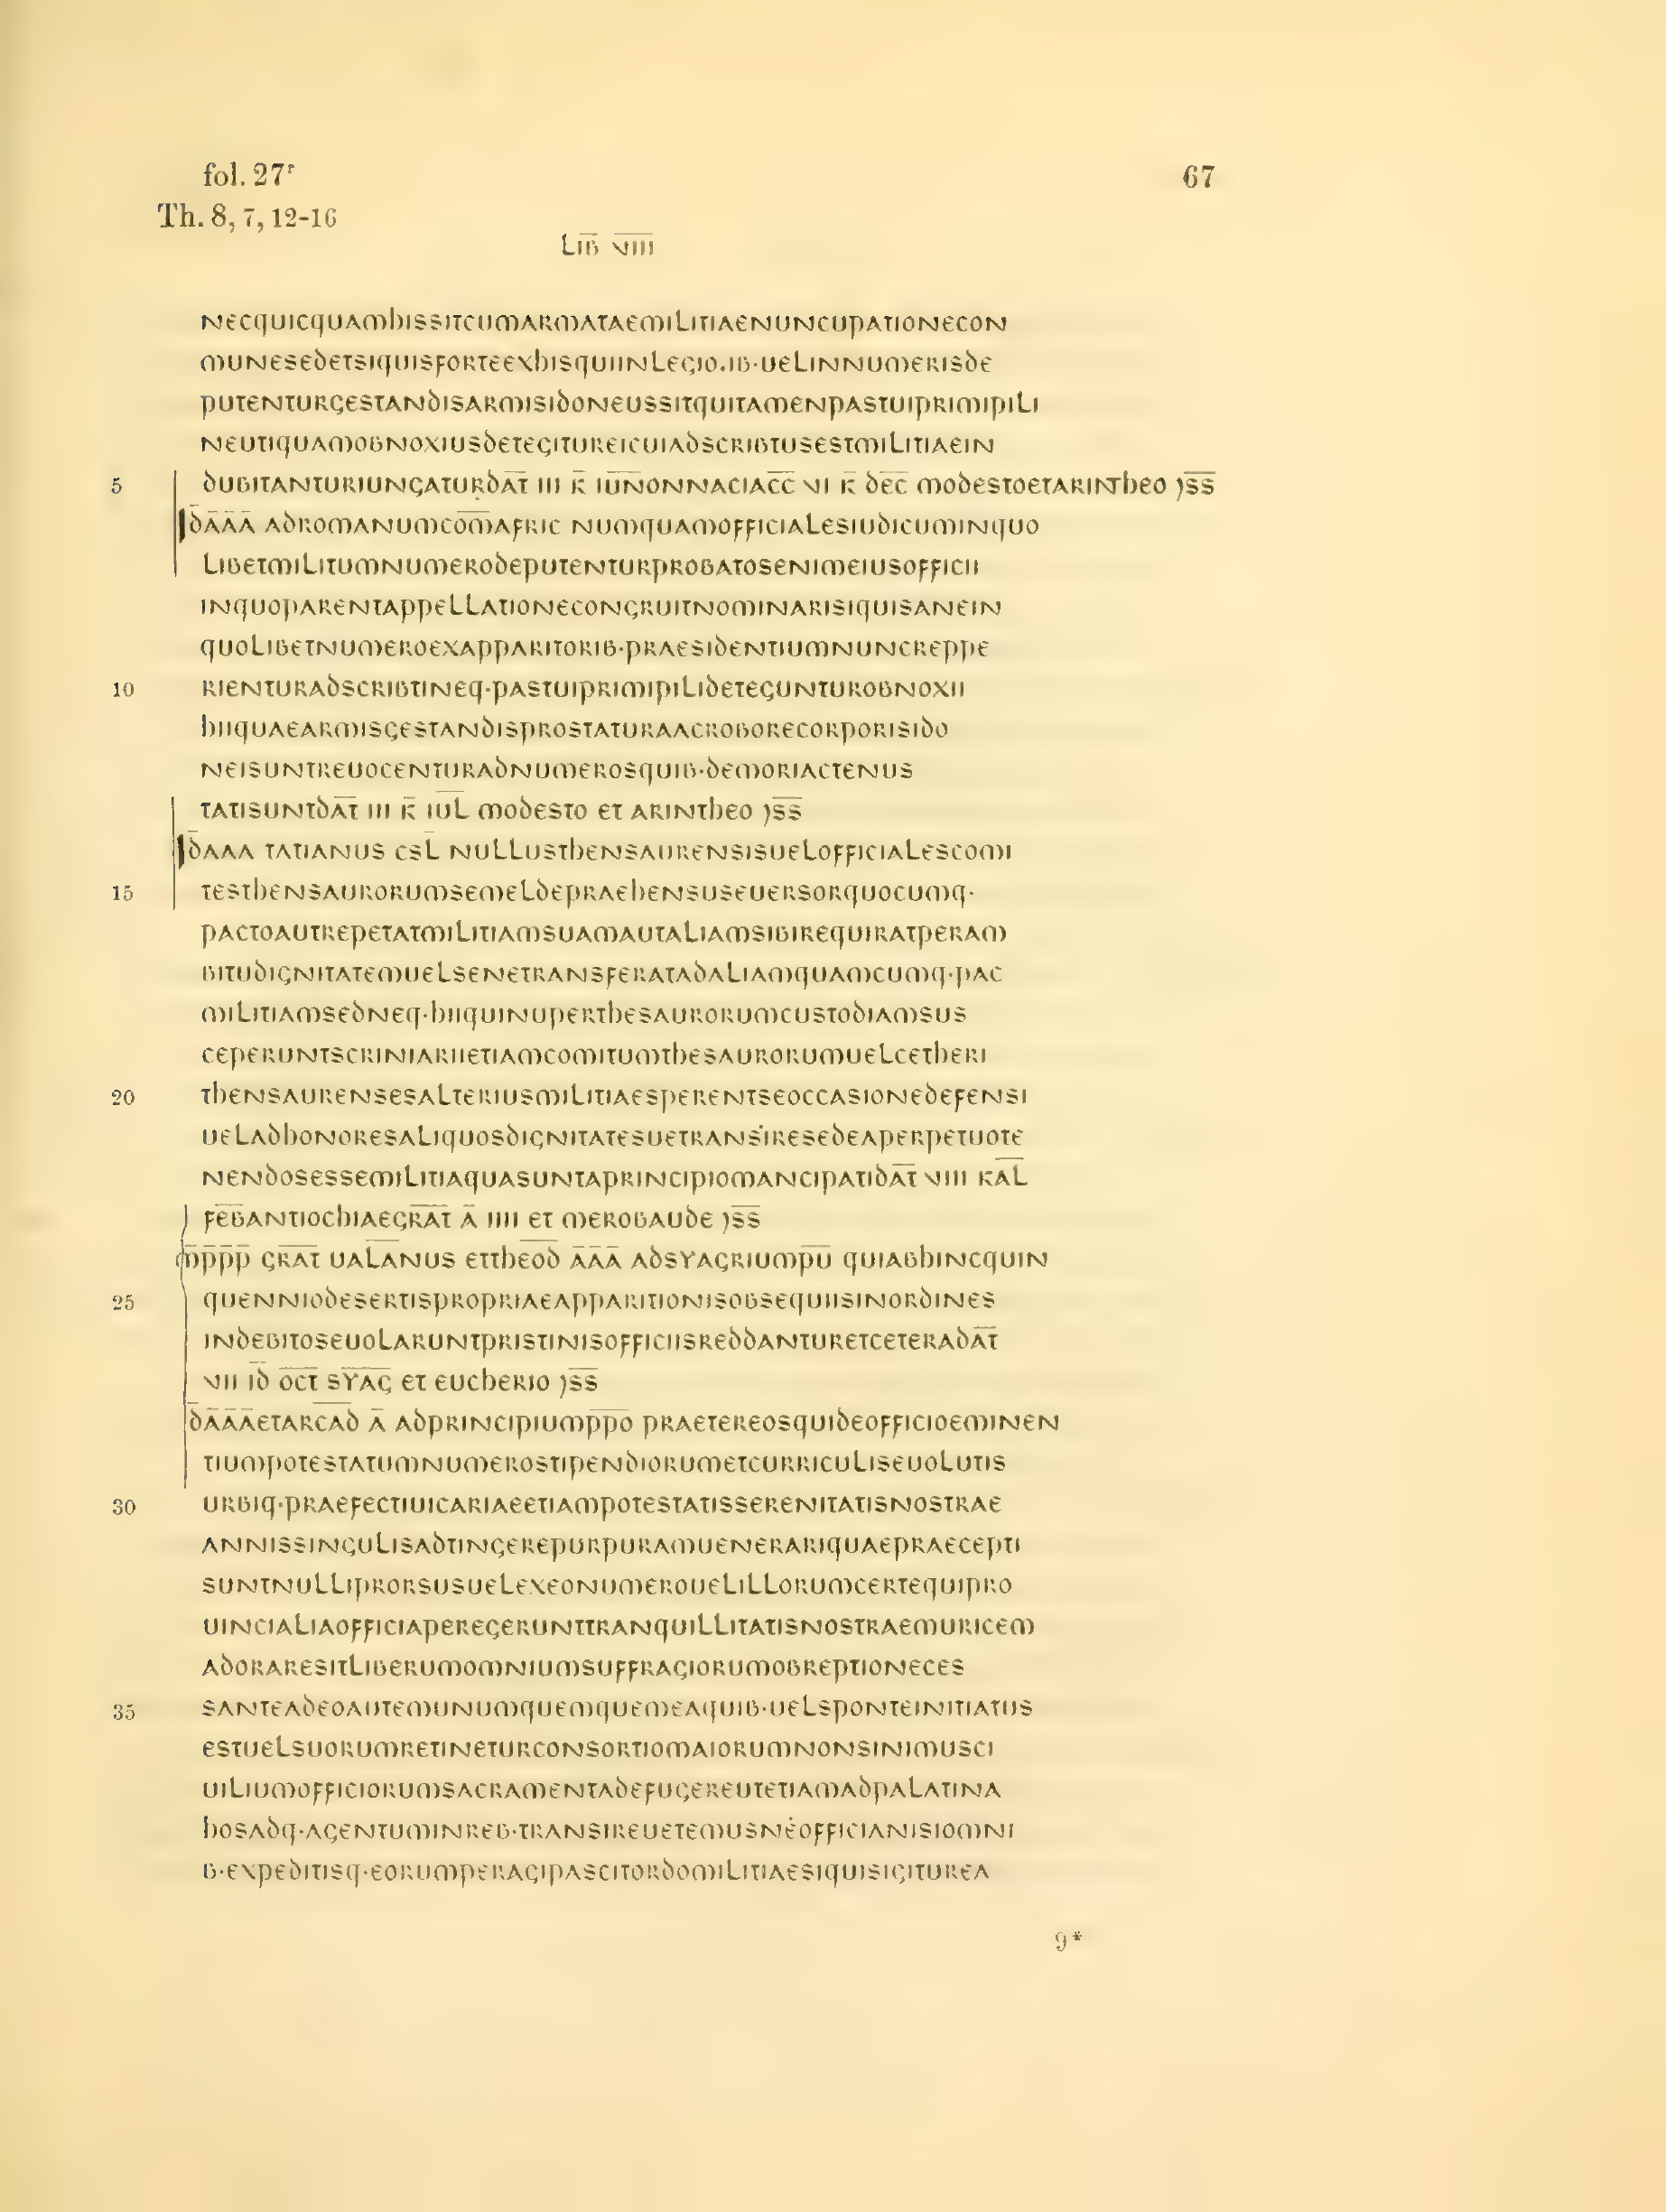 fol. 27ʳ
67
Th. 8, 7, 12-16
LIB̅ V̅I̅I̅I̅
NECQUICQUAMHISSITCUMARMATAEMILITIAENUNCUPATIONECON
MUNESEDETSIQUISFORTEEXHISQUIINLEGIO.IB·UELINNUMERISDE
PUTENTURGESTANDISARMISIDONEUSSITQUITAMENPASTUIPRIMIPILI
NEUTIQUAMOBNOXIUSDETEGITUREICUIADSCRIBTUSESTMILITIAEIN
5 DUBITANTURIUNGATUṚDAT̅ III K̅ IU̅N̅ONNACIAC̅C̅ VI K̅ DE̅C̅ MODESTOETARINTHEO )S̅S̅
D̅A̅A̅A̅ ADROMANUMCO̅M̅AFRIC NUMQUAMOFFICIALESIUDICUMINQUO
LIBETMILITUMNUMERODEPUTENTURPROBATOSENIMEIUSOFFICII
INQUOPARENTAPPELLATIONECONGRUITNOMINARISIQUISANEIN
QUOLIBETNUMEROEXAPPARITORIB·PRAESIDENTIUMNUNCREPPE
10 RIENTURADSCRIBTINEQ·PASTUIPRIMIPILIDETEGUNTUROBNOXII
HIIQUAEARMISGESTANDISPROSTATURAACROBORECORPORISIDO
NEISUNTREUOCENTURADNUMEROSQUIB·DEMORIACTENUS
TATISUNTDA̅T̅ III K̅ IU̅L̅ MODESTO ET ARINTHEO )S̅S̅
D̅AAA TATIANUS CSL̅ NULLUSTHENSAURENSISUELOFFICIALESCOMI
15 TESTHENSAURORUMSEMELDEPRAEHENSUSEUERSORQUOCUMQ·
PACTOAUTREPETATMILITIAMSUAMAUTALIAMSIBIREQUIRATPERAM
BITUDIGNITATEMUELSENETRANSFERATADALIAMQUAMCUMQ·PAC
MILITIAMSEDNEQ·HIIQUINUPERTHESAURORUMCUSTODIAMSUS
CEPERUNTSCRINIARIIETIAMCOMITUMTHESAURORUMUELCETHERI
20 THENSAURENSESALTERIUSMILITIAESPERENTSEOCCASIONEDEFENSI
UELADHONORESALIQUOSDIGNITATESUETRANSIRESEDEAPERPETUOTE
NENDOSESSEMILITIAQUASUNTAPRINCIPIOMANCIPATIDA̅T̅ VIII KA̅L̅
FE̅B̅ANTIOCHIAEGR̅A̅T̅ A̅ IIII ET MEROBAUDE )S̅S̅
I̅M̅P̅P̅P̅ GR̅A̅T̅ UAL̅A̅NUS ETTHE̅O̅D̅ A̅A̅A̅ ADSYAGRIUMP̅U̅ QUIABHINCQUIN
25 QUENNIODESERTISPROPRIAEAPPARITIONISOBSEQUIISINORDINES
INDEBITOSEUOLARUNTPRISTINISOFFICIISREDDANTURETCETERADA̅T̅
VII ID̅ O̅C̅T̅ SY̅A̅G̅ ET EUCHERIO )S̅S̅
D̅A̅A̅A̅ETARC̅A̅D̅ A̅ ADPRINCIPIUMP̅P̅O̅ PRAETEREOSQUIDEOFFICIOEMINEN
TIUMPOTESTATUMNUMEROSTIPENDIORUMETCURRICULISEUOLUTIS
30 URBIQ·PRAEFECTIUICARIAEETIAMPOTESTATISSERENITATISNOSTRAE
ANNISSINGULISADTINGEREPURPURAMUENERARIQUAEPRAECEPTI
SUNTNULLIPRORSUSUELEXEONUMEROUELILLORUMCERTEQUIPRO
UINCIALIAOFFICIAPEREGERUNTTRANQUILLITATISNOSTRAEMURICEM
ADORARESITLIBERUMOMNIUMSUFFRAGIORUMOBREPTIONECES
35 SANTEADEOAUTEMUNUMQUEMQUEMEAQUIB·UELSPONTEINITIATUS
ESTUELSUORUMRETINETURCONSORTIOMAIORUMNONSINIMUSCI
UILIUMOFFICIORUMSACRAMENTADEFUGEREUTETIAMADPALATINA
HOSADQ·AGENTUMINREB·TRANSIREUETEMUSNĖOFFICIANISIOMNI
B·EXPEDITISQ·EORUMPERAGIPASCITORDOMILITIAESIQUISIGITUREA
9*